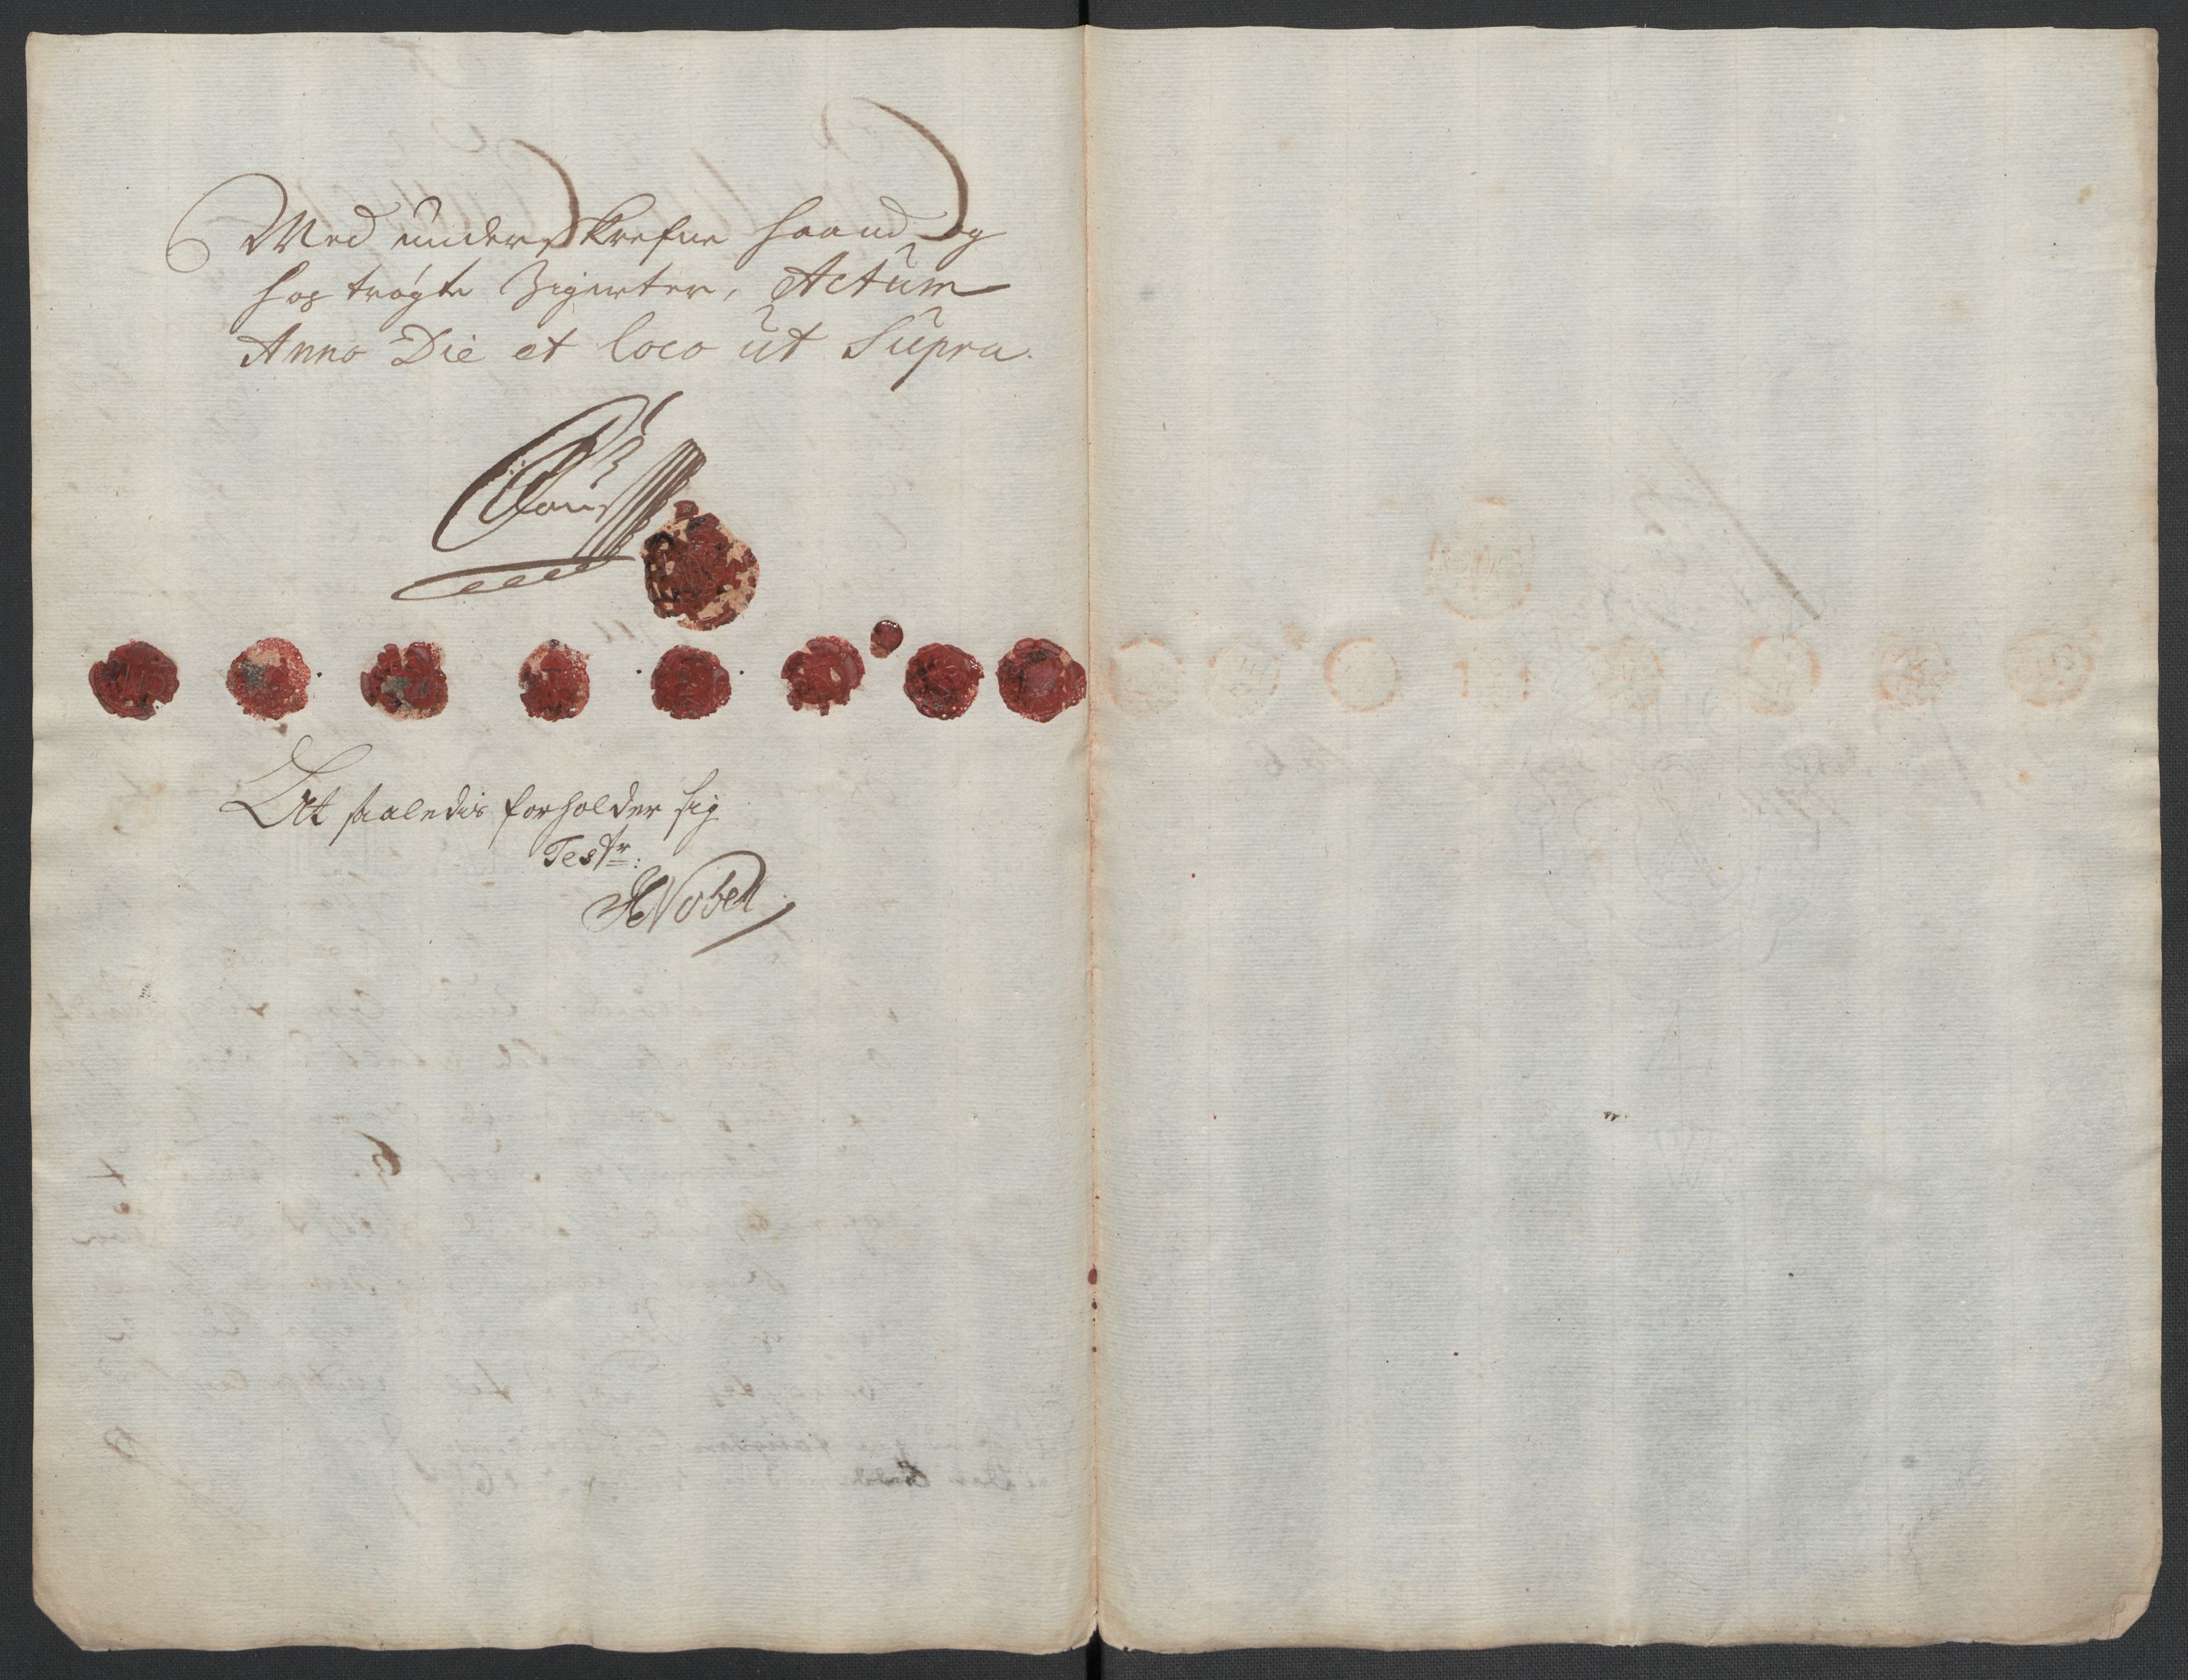 Med underskrefne haand og
hos trögte Zigneter, Actum
Anno Die et loco ut Supra.
At saaledis forholder sig
Testr:
HNobel